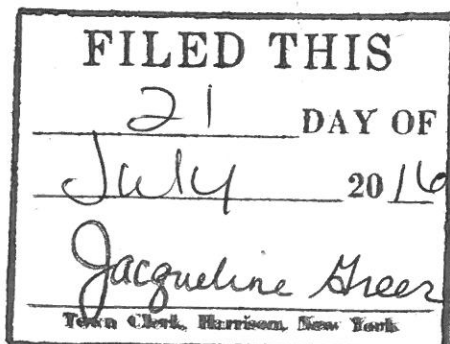 FILED THIS
21 DAY OF
July 2016
Jacqueline Greer
Town Clerk, Harrison, New York